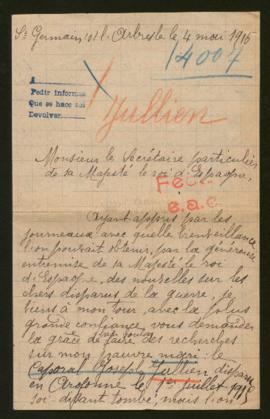 St Germain s/l. Arbresle le 4 mai 1916
14007
A
Pedir informes
Que se hace aquí
Devolver
Jullien
Monsieur le Secrétaire particulier
de sa Majesté le roi d'Espagne,
Fec.
e.a.c.
Ayant appris par les
journaux avec quelle bienveillance
l'on pouvait obtenir, par la généreuse
entremise de sa Majesté le roi
d'Espagne, des nouvelles sur les
chers disparus de la guerre, je
viens à mon tour avec la plus
grande confiance vous demander
la grâce de faire des recherches
sur mon pauvre mari: le
caporal Joseph Jullien disparu
en Argonne le juillet 1915
soi-disant tombé, mais l'on